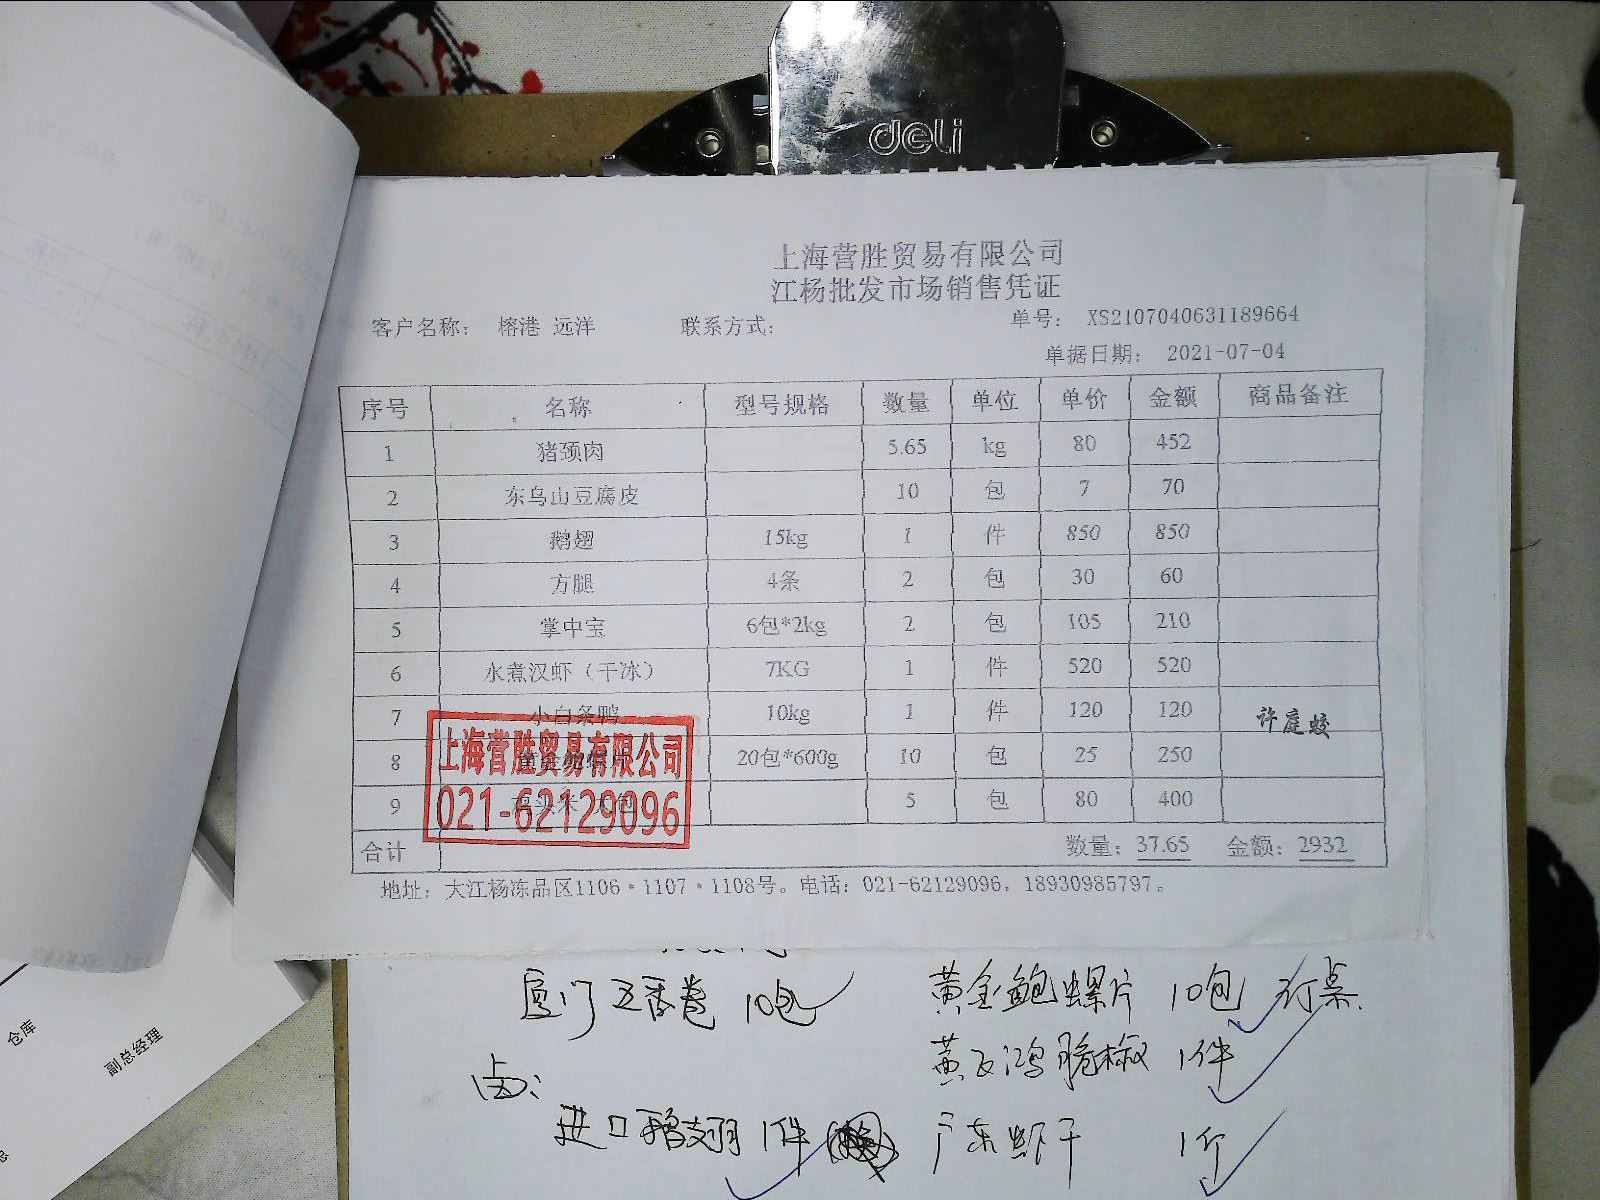 deli
上海营胜贸易有限公司
江杨批发市场销售凭证
客户名称： 榕港 远洋 联系方式： 单号： XS2107040631189664
单据日期： 2021-07-04
序号 名称 型号规格 数量 单位 单价 金额 商品备注
1 猪颈肉 5.65 kg 80 452
2 东乌山豆腐皮 10 包 7 70
3 鹅翅 15kg 1 件 850 850
4 方腿 4条 2 包 30 60
5 掌中宝 6包*2kg 2 包 105 210
6 水煮汉虾（干冰） 7KG 1 件 520 520
7 小白条鸭 10kg 1 件 120 120 许庭蛟
8 黄金鲍螺片 20包*600g 10 包 25 250
9 鸡头米 大包 5 包 80 400
上海营胜贸易有限公司
021-62129096
合计 数量：37.65 金额：2932
地址：大江杨冻品区1106·1107·1108号。电话：021-62129096，18930985797。
厦门五香卷 10包 黄金鲍螺片 10包
黄飞鸿脆椒 1件
卤：
进口鹅翅 1件 广东虾干 1斤
仓库
副总经理